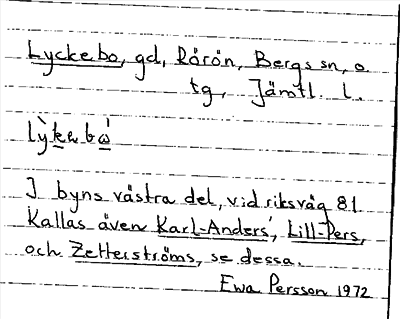 Lyckebo, gd, Rörön, Bergs sn, o.
tg, Jämtl. l.
lỳkebὼ
I byns västra del, vid riksväg 81
Kallas även Karl-Anders', Lill-Pers,
och Zetterströms, se dessa.
Ewa Persson 1972